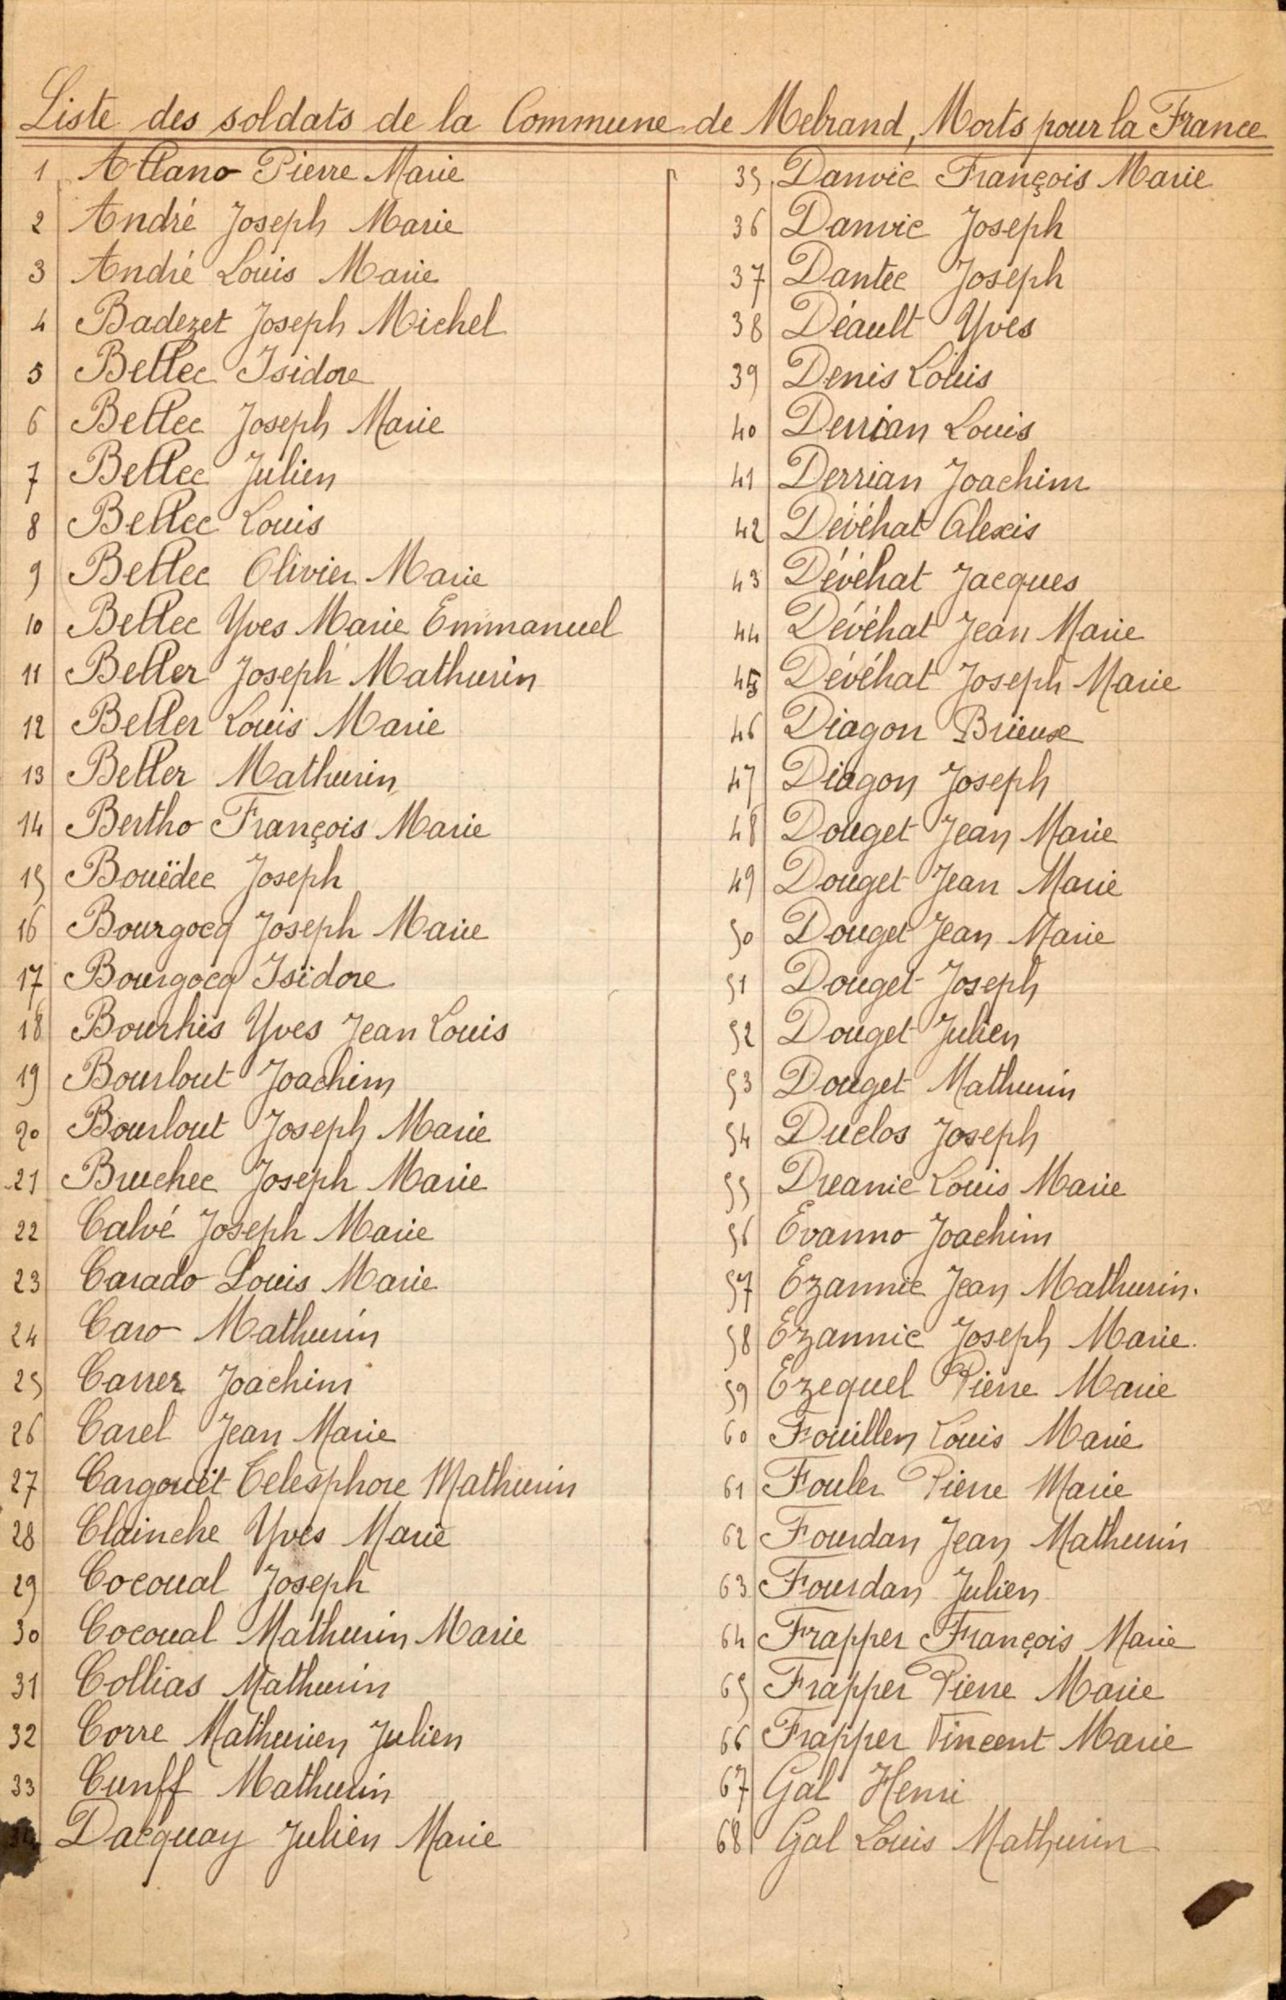 Liste des soldats de la Commune de Melrand, Morts pour la France
1 Allano Pierre Marie
2 André Joseph Marie
3 André Louis Marie
4 Badezet Joseph Michel
5 Bellec Isidore
6 Bellec Joseph Marie
7 Bellec Julien
8 Bellec Louis
9 Bellec Olivier Marie
10 Bellec Yves Marie Emmanuel
11 Beller Joseph Mathurin
12 Beller Louis Marie
13 Beller Mathurin
14 Bertho François Marie
15 Bouëdec Joseph
16 Bourgocq Joseph Marie
17 Bourgocq Isidore
18 Bourhis Yves Jean Louis
19 Bourlout Joachim
20 Bourlout Joseph Marie
21 Bruchec Joseph Marie
22 Calvé Joseph Marie
23 Carado Louis Marie
24 Caro Mathurin
25 Carrer Joachim
26 Carel Jean Marie
27 Cargouët Celesphore Mathurin
28 Clainche Yves Marie
29 Cocoual Joseph
30 Cocoual Mathurin Marie
31 Collias Mathurin
32 Corre Mathurien Julien
33 Cunff Mathurin
34 Dacquay Julien Marie
35 Danvic François Marie
36 Danvic Joseph
37 Dantec Joseph
38 Déault Yves
39 Denis Louis
40 Derrian Louis
41 Derrian Joachim
42 Dévéhat Alexis
43 Dévéhat Jacques
44 Dévéhat Jean Marie
45 Dévéhat Joseph Marie
46 Diagon Brieuse
47 Diagon Joseph
48 Douget Jean Marie
49 Douget Jean Marie
50 Douget Jean Marie
51 Douget Joseph
52 Douget Julien
53 Douget Mathurin
54 Duclos Joseph
55 Dreanic Louis Marie
56 Evanno Joachim
57 Ezannic Jean Mathurin.
58 Ezannic Joseph Marie.
59 Ezequel Pierre Marie
60 Fouillen Louis Marie
61 Fouler Pierre Marie
62 Fourdan Jean Mathurin
63 Fourdan Julien
64 Frapper François Marie
65 Frapper Pierre Marie
66 Frapper Vincent Marie
67 Gal Henri
68 Gal Louis Mathurin